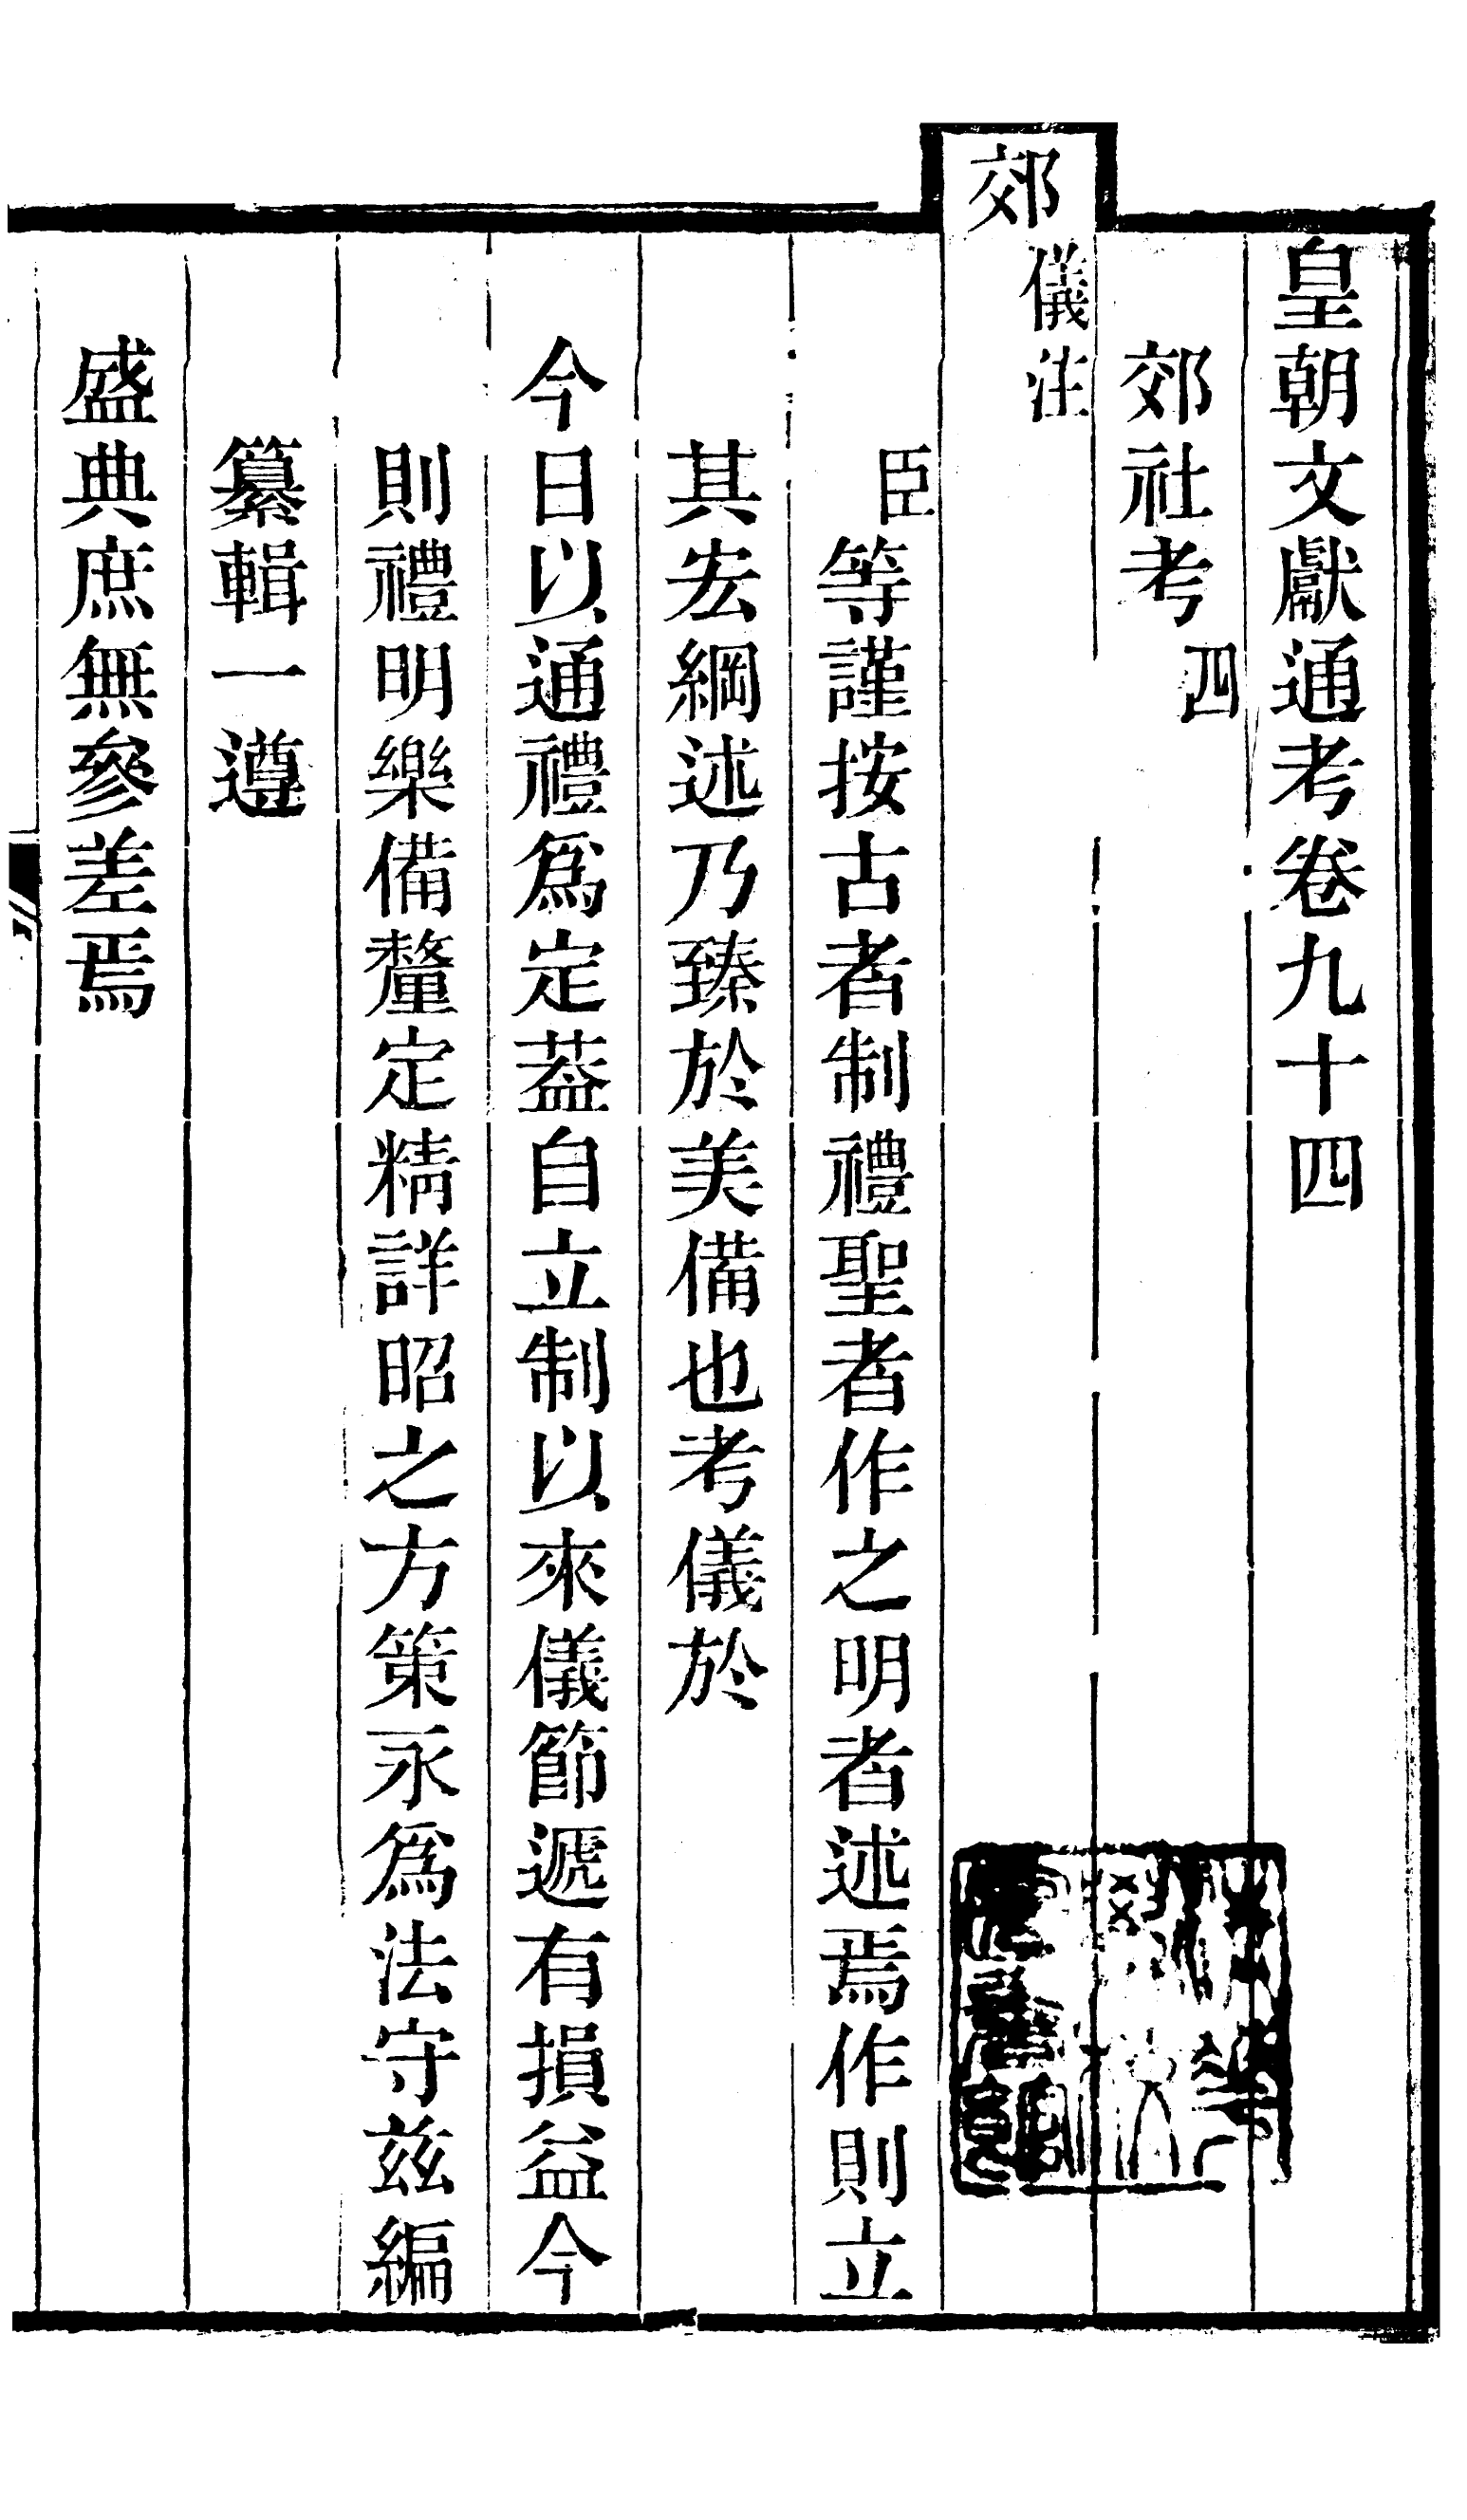 皇朝文獻通考卷九十四
郊社考四
郊儀注
臣等謹按古者制禮聖者作之明者述焉作則立
其宏綱述乃臻於美備也考儀於
今日以通禮爲定葢自立制以來儀節遞有損益今
則禮明樂備釐定精詳昭之方策永爲法守兹編
纂輯一遵
盛典庶無參差焉